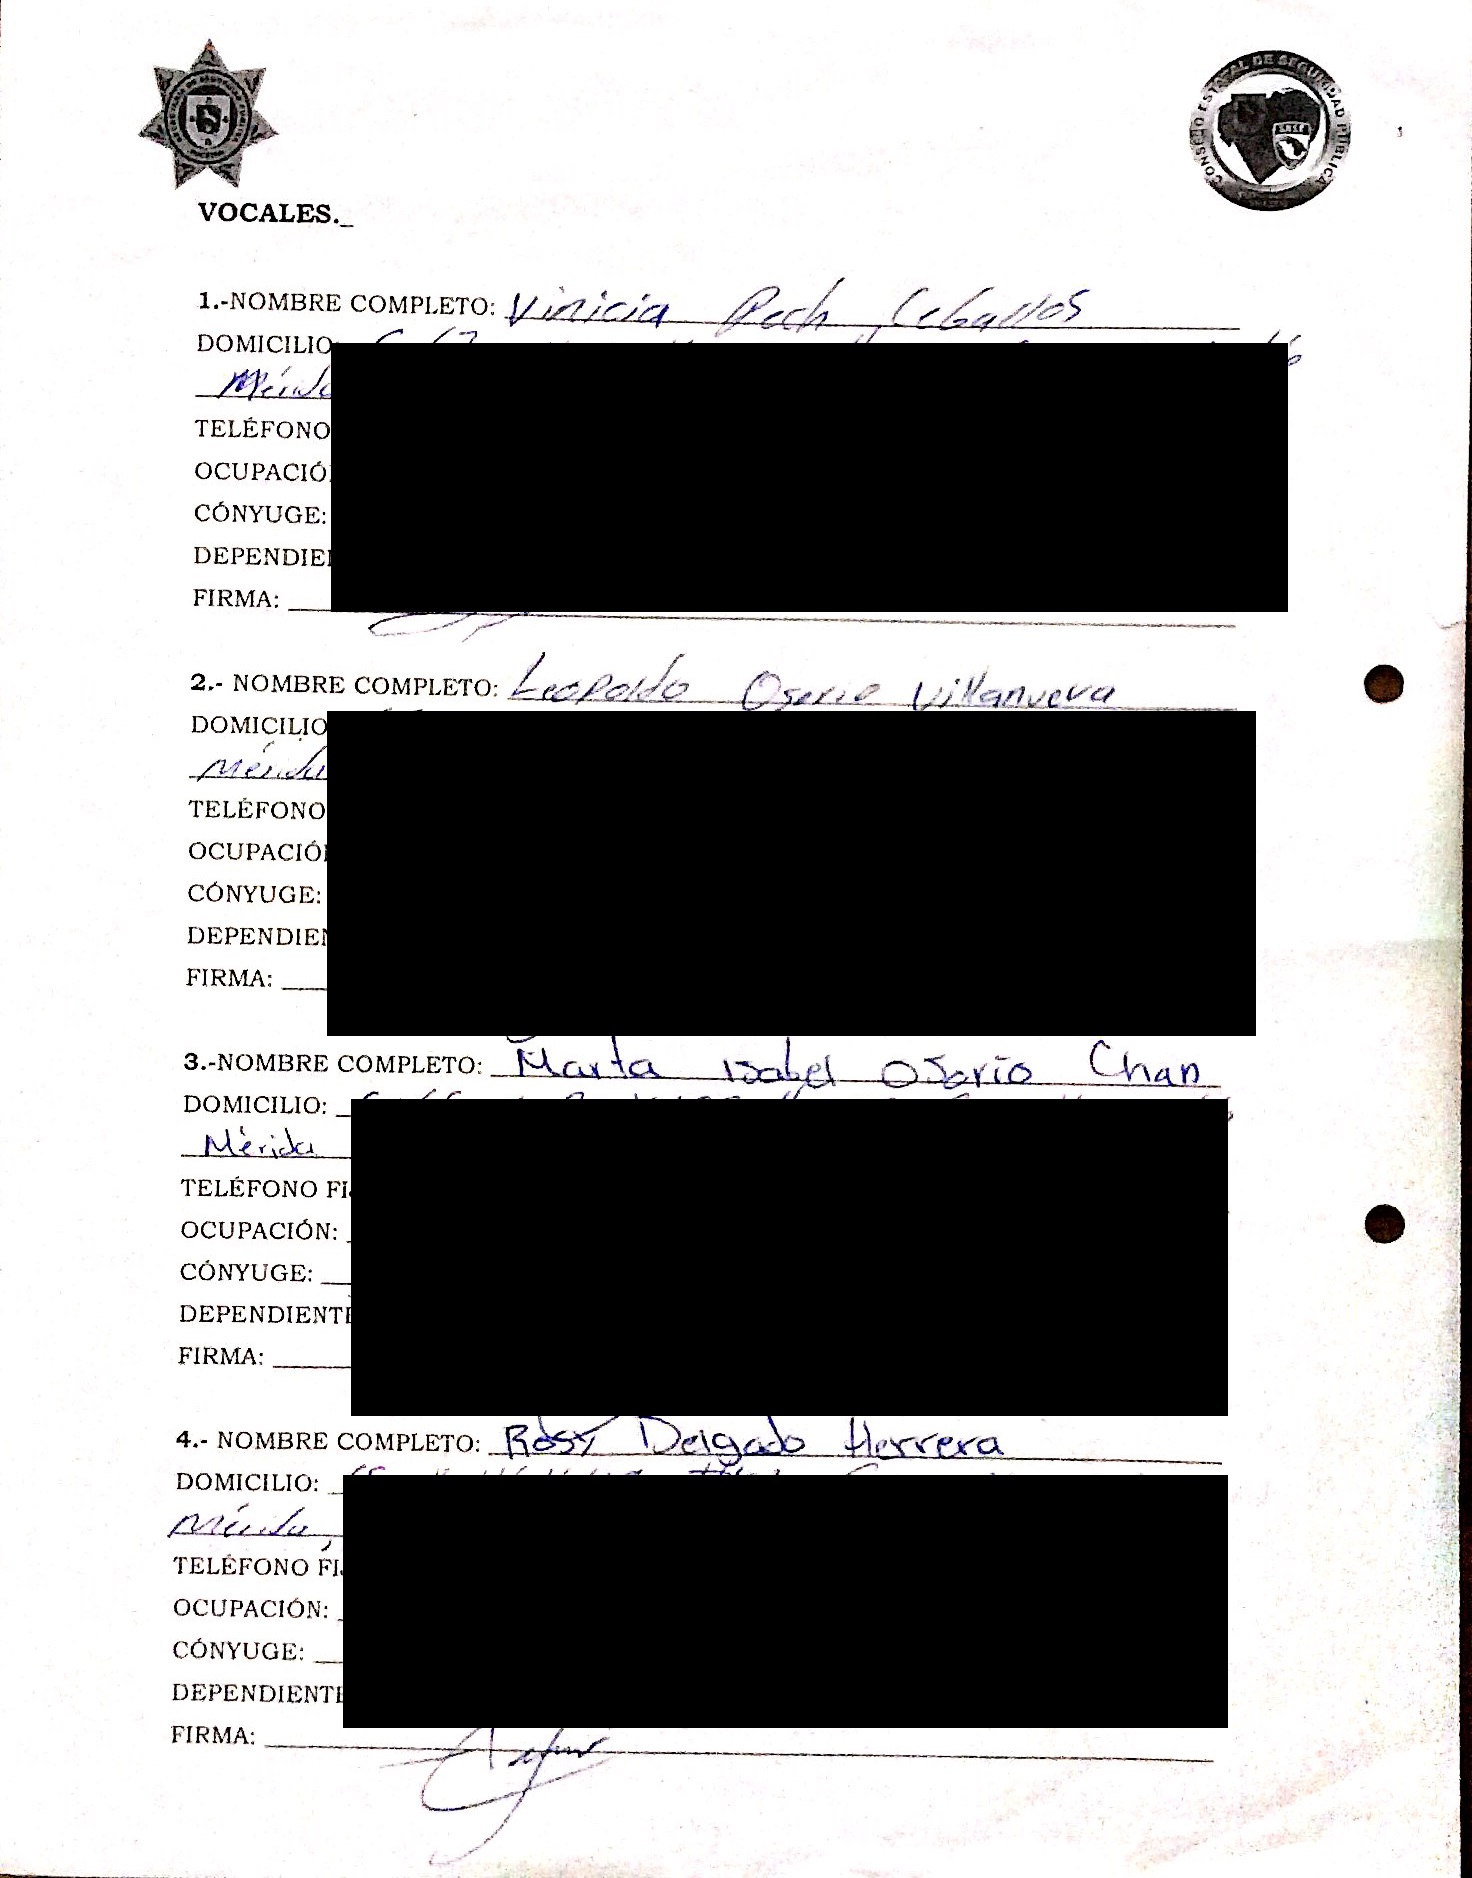 CONSEJO ESTATAL DE SEGURIDAD PÚBLICA
VOCALES._
1.-NOMBRE COMPLETO: Vinicia Pech Ceballos
DOMICILIO
Mérida
TELÉFONO
OCUPACIÓ
CÓNYUGE:
DEPENDIE
FIRMA:
2.- NOMBRE COMPLETO: Leopoldo Osorio Villanueva
DOMICILIO
Mérida
TELÉFONO
OCUPACIÓ
CÓNYUGE:
DEPENDIE
FIRMA:
3.-NOMBRE COMPLETO: Marta Isabel Osorio Chan
DOMICILIO:
Mérida
TELÉFONO FI
OCUPACIÓN:
CÓNYUGE:
DEPENDIENT
FIRMA:
4.- NOMBRE COMPLETO: Rosy Delgado Herrera
DOMICILIO:
Mérida,
TELÉFONO FI
OCUPACIÓN:
CÓNYUGE:
DEPENDIENT
FIRMA: